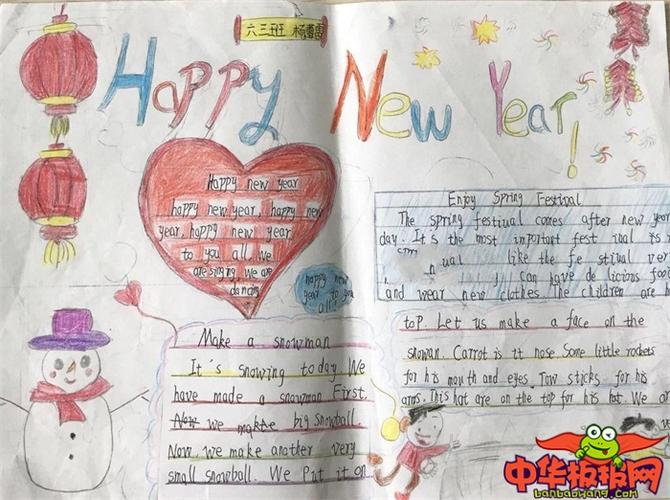 六三班 杨雪雪
Happy New Year!
Happy new year
happy new year, happy new
year, happy new year
to you all. We
are singing, We are
dancing
happy new
year to you
all!!
Enjoy Spring Festival
The spring festiual comes after new year
day. It's the most important fest iual
like the fe stiual ver
can have de licious for
and wear new clothes. The children are h
Make a snowman
It's snowing today. We
have made a snowman First,
Now we make big snowball.
Now, we make another very
small snowball. We Put it on
top Let us make a face on the
snowan. Carrot is it nose Some little rockets
for his mouth and eyes. Tow sticks for his
arms. This hat are on the top for his hat. We ar
中华板报网
banbaowang.com